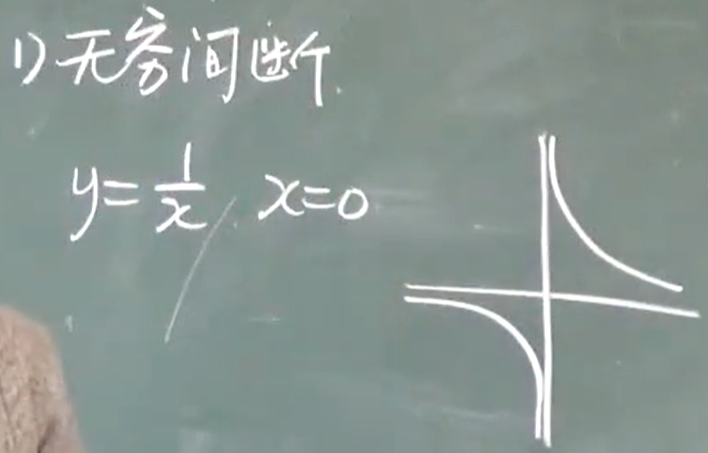 1) 无穷间断
y=1/x, x=0